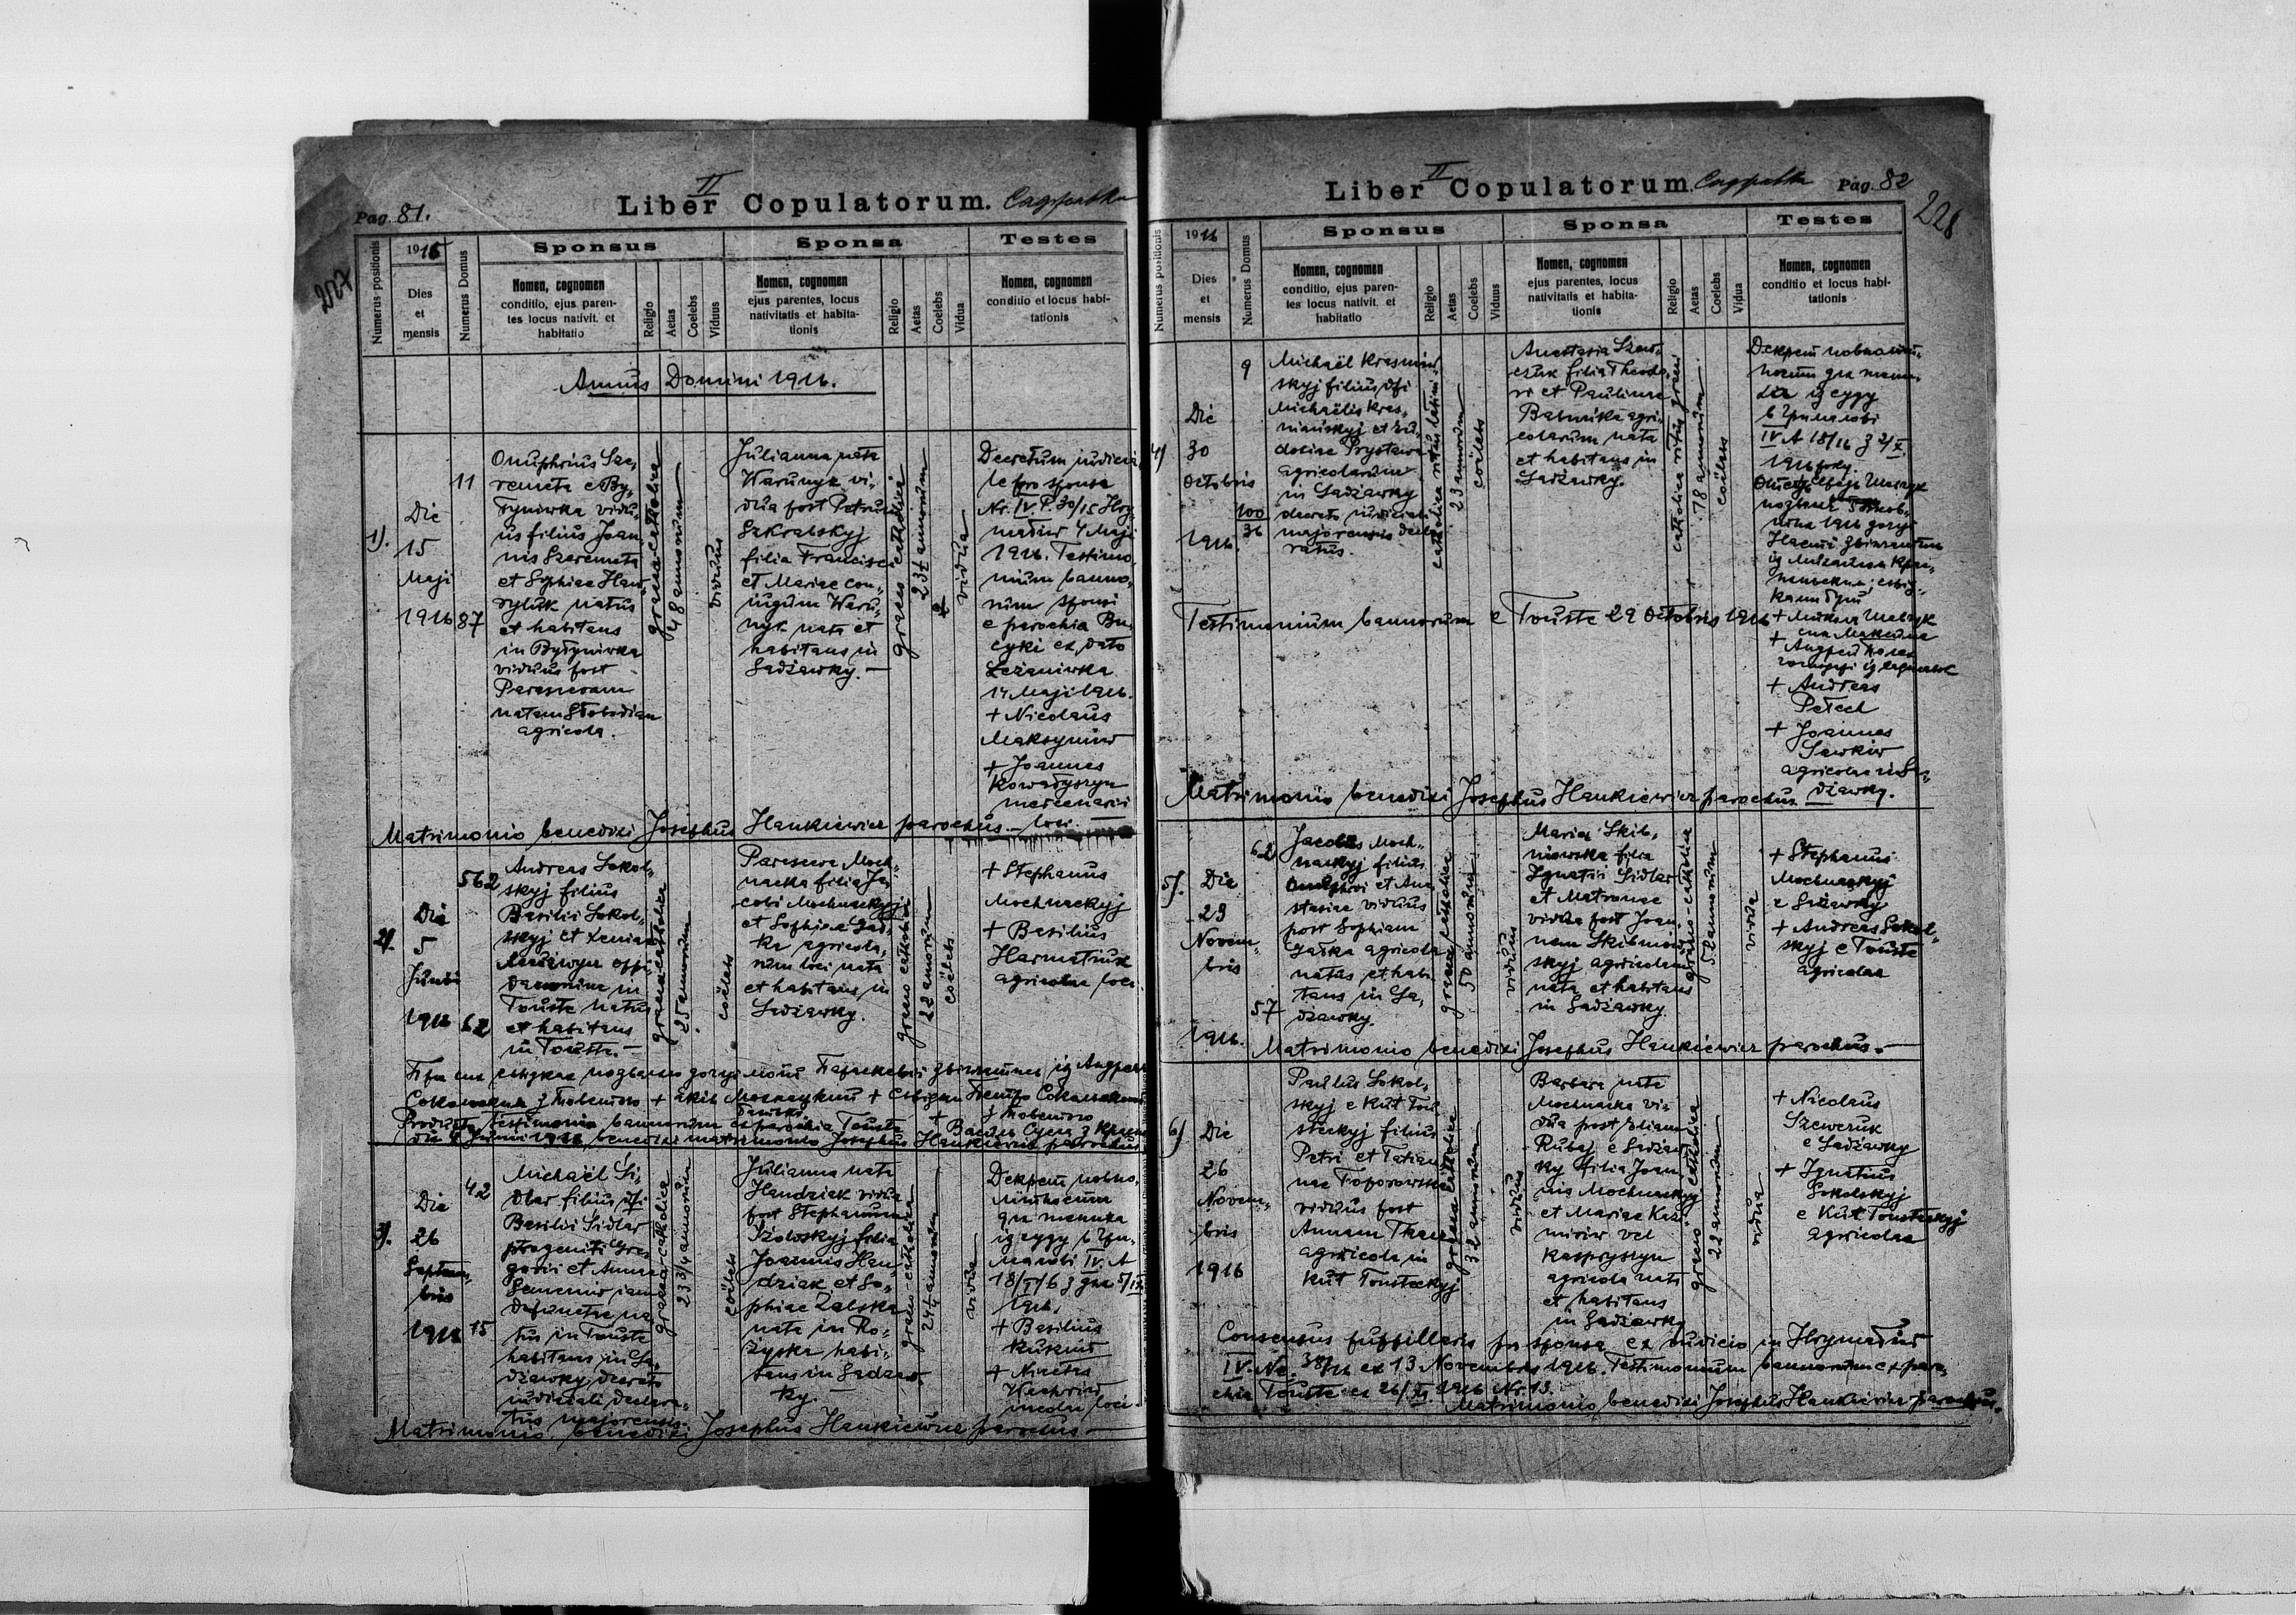 Pag. 81.
II
Liber Copulatorum.
207
Numerus positionis
1916
Dies
et
mensis
Numerus Domus
Sponsus
Nomen, cognomen
conditio, ejus paren-
tes locus nativit. et
habitatio
Religio
Aetas
Coelebs
Viduus
Sponsa
Nomen, cognomen
ejus parentes, locus
nativitatis et habita-
tionis
Religio
Aetas
Coelebs
Vidua
Testes
Nomen, cognomen
conditio et locus habi-
tationis
Annus Domini 1916.
1).
Die
15
Maji
1916
11
87
Onuphrius Sze,
remeta e By,
tyniwka vidu,
us filius Joan,
nis Szeremeta
et Sophiae Haw
ryluk natus
et habitans
in Bytyniwka
viduus post
Parasceuam
natam Slobodian
agricola.
graeco catholica
48 annorum
viduus
Julianna nata
Warunyk vi,
dua post Petrum
Szkralskyj
filia Francisci
et Mariae con,
jugum Waru,
nyk nata et
habitans in
Sadżawky.
graeco catholica
23½ annorum
vidua
Decretum iudicia,
le pro sponsa
Nr. IV. P. 30/15 Hry,
maliw 4 Maji
1916. Testimo,
nium banno,
rum sponsi
e parochia Bu,
cyki ex dato
Leżaniwka
14 Maji 1916.
+ Nicolaus
Maksymiw
+ Joannes
Kowalyszyn
mercenarii
loci.
Matrimonio benedixi Josephus Hankiewicz parochus.
2).
Die
5
Junii
1916
562
62
Andreas Sokol,
skyj filius
Basilii Sokol,
skyj et Xeniae
in
Touste natus
et habitans
in Touste.
graeco catholica
25 annorum
coelebs
Parascewa Moch,
nacka filia Ja,
cobi Mochnackyj
et Sophiae Gał,
ka agricola,
rum loci nata
et habitans in
Sadżawky.
graeco catholica
22 annorum
coelebs
+ Stephanus
Mochnackyj
+ Basilius
Harmatiuk
agricolae loci
При сих свідках позволяю доци моїй Параскевії звінчатися із Андреєм
Сокольским з Товстого + Яків Мохнацкий + Свідок Петро Сокольский
з Товстого
Producto testimonio bannorum ex parochia Touste
die 4 Junii 1916 benedixi matrimonio Josephus Hankiewicz parochus
3).
Die
26
Septem,
bris
1916
42
15
Michaël Si,
dlar filius
Basilii Sidlar
progeniti Gre,
gorii et Annae
Semeniw iam
defunctae na,
tus in Touste
habitans in Sa,
dżawky, decreto
iudiciali declara,
tus majorensis.
graeco catholica
23 3/4 annorum
coelebs
Julianna nata
Handziak vidua
post Stephanum
filia
Joannis Han,
dziak et So,
phiae Zalska
nata in Ro,
żyska habi,
tans in Sadżaw,
ky.
graeco-catholica
24½ annorum
vidua
Декрет повно,
літности
для
із суду в Гри,
малові IV. A
18/16 з дня 5/IX
1916.
+ Basilius
Kukuruz
+ Nicetas
incolae loci
Matrimonio benedixi Josephus Hankiewicz parochus
II
Liber Copulatorum.
Pag. 82
228
Numerus positionis
1916
Dies
et
mensis
Numerus Domus
Sponsus
Nomen, cognomen
conditio, ejus paren-
tes locus nativit. et
habitatio
Religio
Aetas
Coelebs
Viduus
Sponsa
Nomen, cognomen
ejus parentes, locus
nativitatis et habita-
tionis
Religio
Aetas
Coelebs
Vidua
Testes
Nomen, cognomen
conditio et locus habi-
tationis
4)
Die
30
Octobris
1916.
9
100
36
Michaël Krasniw
skyj filius
Michaëlis Kras,
niwskyj et Eu,
dociae Prystawa
agricolarum
in Sadżawky
decreto iudiciali
majorensis decla
ratus.
catholica ritus latini
23 annorum
coelebs
Anastasia Szew,
czuk filia Theodo,
ri et Paulinae
Babunka agri,
colarum nata
et habitans in
Sadżawky.
catholica ritus graeci
18 annorum
coelebs
Декрет
із суду
в Грималові
IV A 18/16 з 2/X.
1916 року.
+ Andreas
Petech
+ Joannes
Sawkiw
agricolae in Sa,
dżawky.
Testimonium bannorum e Touste 29 Octobris 1916
Matrimonio benedixi Josephus Hankiewicz parochus.
5).
Die
29
Novem,
bris
1916.
62
57
Jacobus Moch,
nackyj filius
Onuphrii et Ana
stasiae viduus
post Sophiam
Gałka agricola
natus et habi
tans in Sa,
dżawky.
graeco catholica
50 annorum
viduus
Maria Skib,
niewska filia
Ignatii Sidlar
et Matronae
vidua post Joan
nem Skibniew
skyj agricolam
nata et habitans
in Sadżawky.
graeco-catholica
52 annorum
vidua
+ Stephanus
Mochnackyj
e Sadżawky
+ Andreas Sokol,
skyj e Touste
agricolae
Matrimonio benedixi Josephus Hankiewicz parochus.
6)
Die
26
Novem,
bris
1916
Paulus Sokol,
skyj e Kut Tou
steckyj filius
Petri et Tatian
nae Toporowska
viduus post
Annam Tkacz
agricola in
Kut Tousteckyj
graeco catholica
32 annorum
viduus
Barbara nata
Mochnacka vi,
dua post Eliam
Kubej e Sadżaw
ky filia Joan
nis Mochnackyj
et Mariae Kazi
miriw vel
Kaspryszyn
agricola nata
et habitans
in Sadżawky
graeco catholica
22 annorum
vidua
+ Nicolaus
Szewczuk
e Sadżawky
+ Ignatius
Sokolskyj
e Kut Tousteckyj
agricolae
Consensus pupillaris pro sponsa ex iudicio in Hrymaliw
IV. Nc. 38/16 ex 13 Novembris 1916. Testimonium bannorum ex paro,
chia Touste ex 26/XI. 1916 Nr. 13.
Matrimonio benedixi Josephus Hankiewicz parochus.